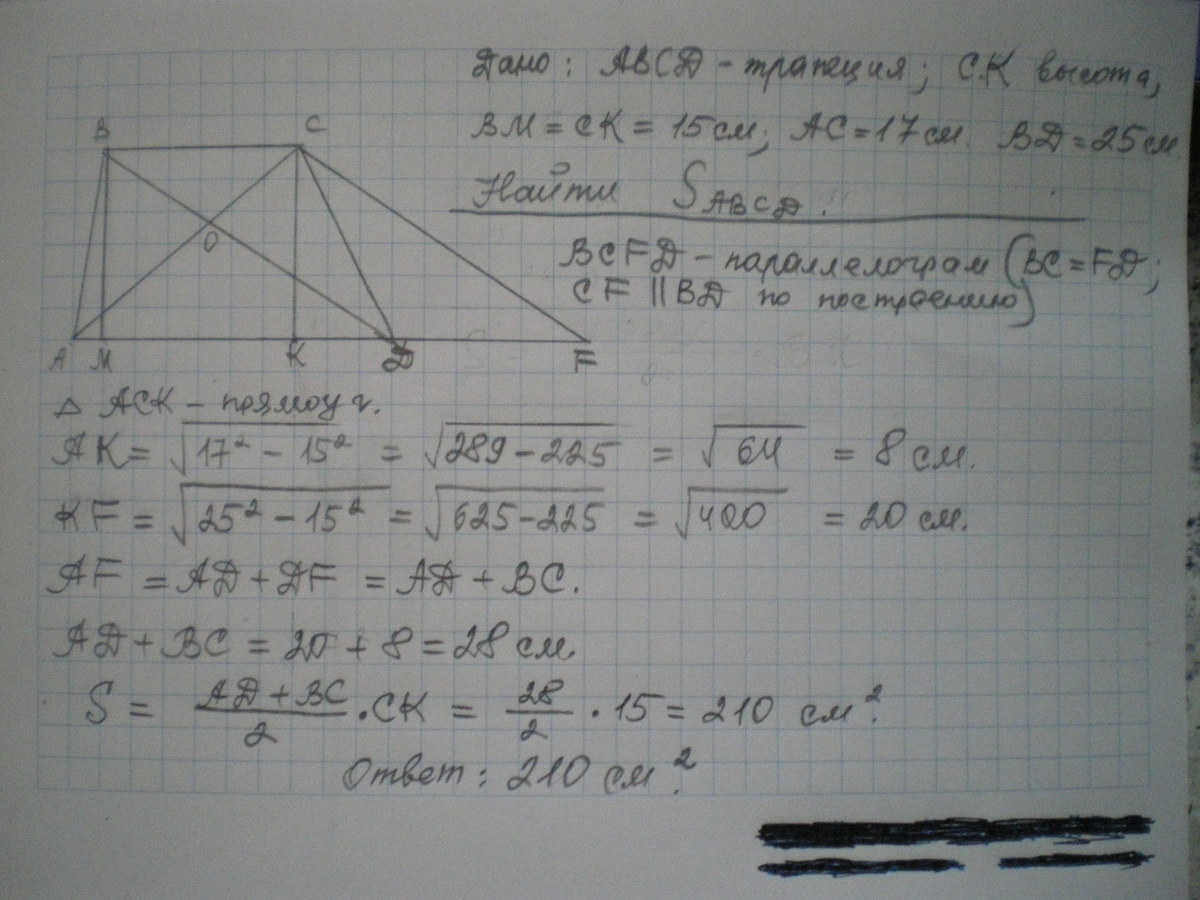 Дано: ABCD - трапеция; CK высота,
BM = CK = 15 см; AC = 17 см. BD = 25 см
Найти S ABCD.
B C
O
A M K D F
BCFD - параллелограм (BC = FD;
CF || BD по построению)
△ ACK - прямоуг.
AK = √17² - 15² = √289 - 225 = √64 = 8 см.
KF = √25² - 15² = √625 - 225 = √400 = 20 см.
AF = AD + DF = AD + BC.
AD + BC = 20 + 8 = 28 см.
S = AD + BC / 2 · CK = 28 / 2 · 15 = 210 см².
Ответ: 210 см².